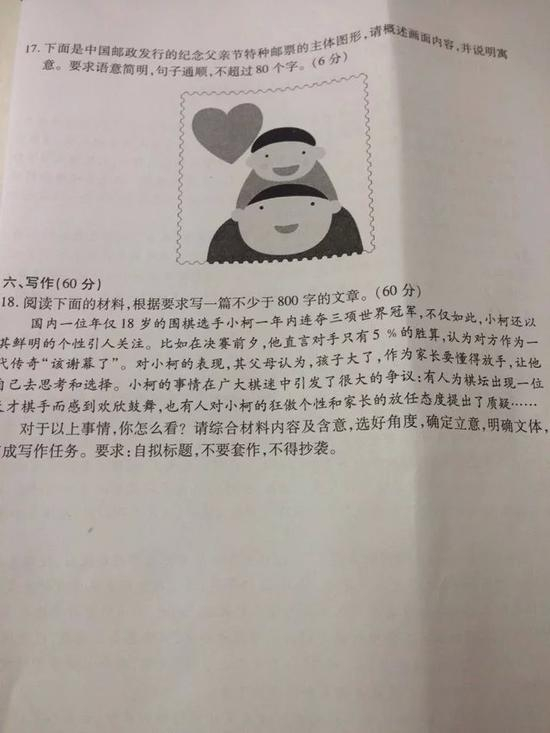 17. 下面是中国邮政发行的纪念父亲节特种邮票的主体图形,请概述画面内容,并说明寓
意。要求语意简明,句子通顺,不超过80个字。(6分)
六、写作(60分)
18. 阅读下面的材料,根据要求写一篇不少于800字的文章。(60分)
国内一位年仅18岁的围棋选手小柯一年内连夺三项世界冠军,不仅如此,小柯还以
其鲜明的个性引人关注。比如在决赛前夕,他直言对手只有5%的胜算,认为对方作为一
代传奇“该谢幕了”。对小柯的表现,其父母认为,孩子大了,作为家长要懂得放手,让他
自己去思考和选择。小柯的事情在广大棋迷中引发了很大的争议:有人为棋坛出现一位
天才棋手而感到欢欣鼓舞,也有人对小柯的狂傲个性和家长的放任态度提出了质疑……
对于以上事情,你怎么看?请综合材料内容及含意,选好角度,确定立意,明确文体,
成写作任务。要求:自拟标题,不要套作,不得抄袭。